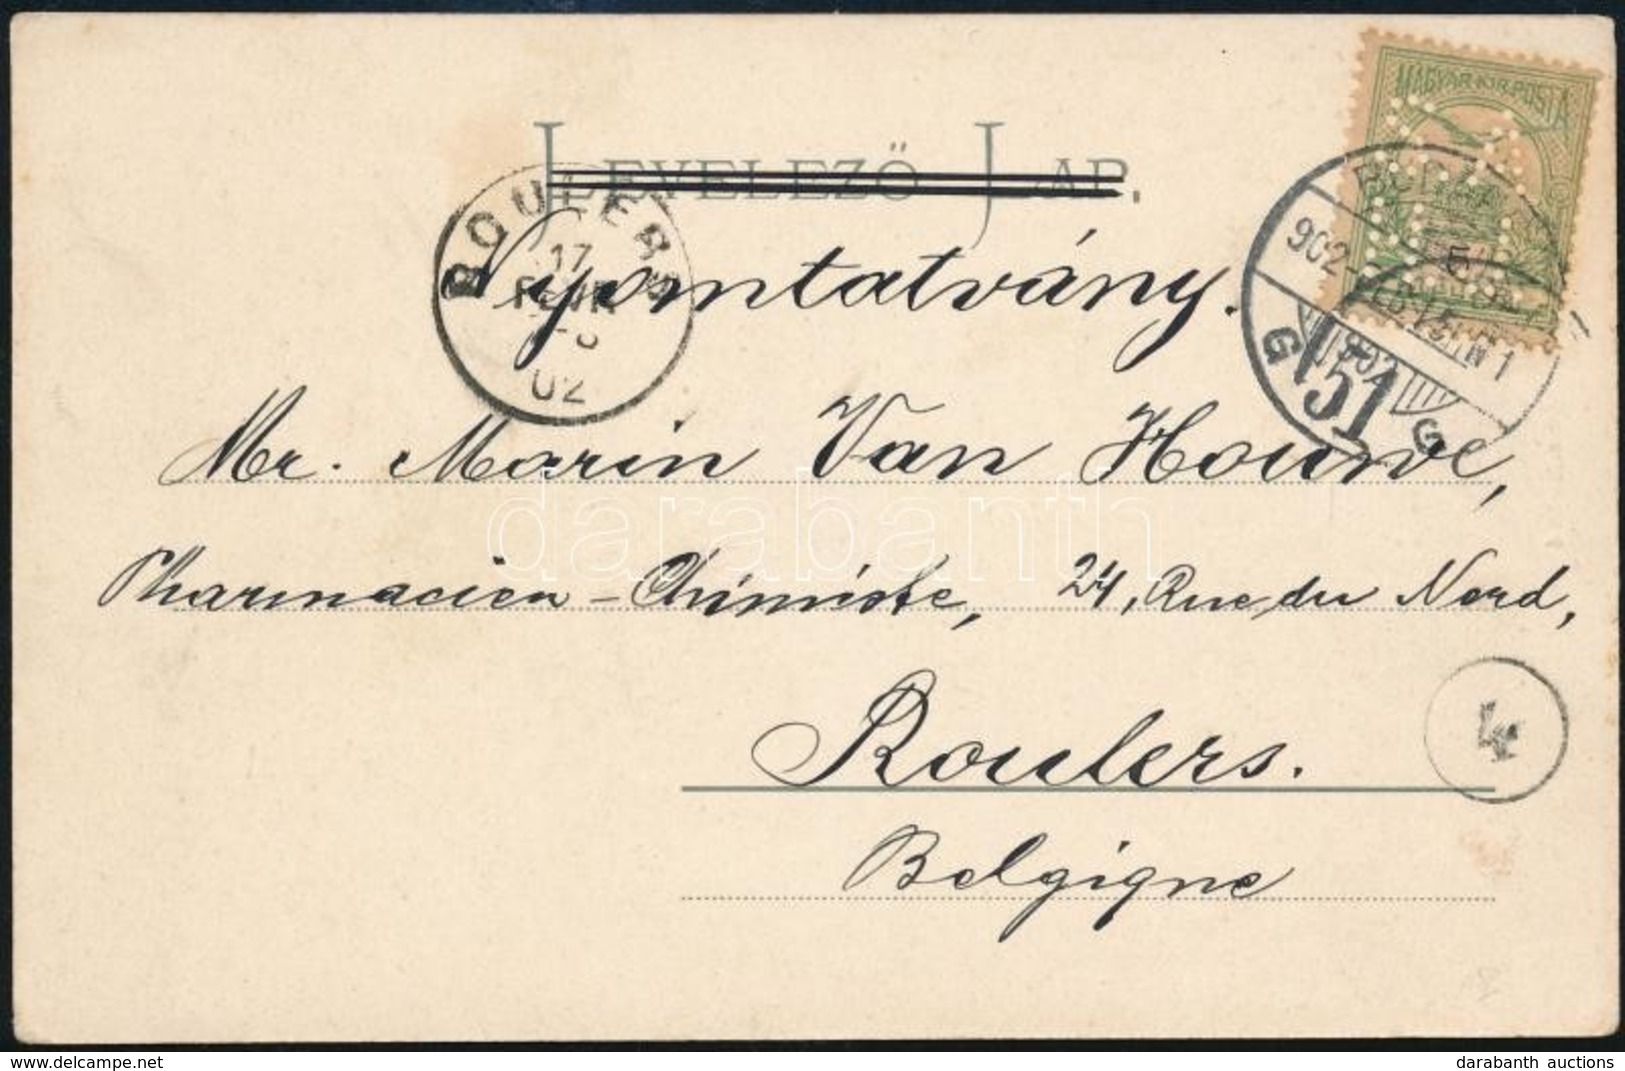 LEVELEZŐ LAP.
MAGYAR KIR. POSTA
ROULERS
17
02
Nyomtatvány.
902
51
G G
Mr. Marin Van Houwe,
Pharmacien-Chimiste, 24, Rue du Nord,
4
Roulers.
Belgique
darabanth
darabanth auctions